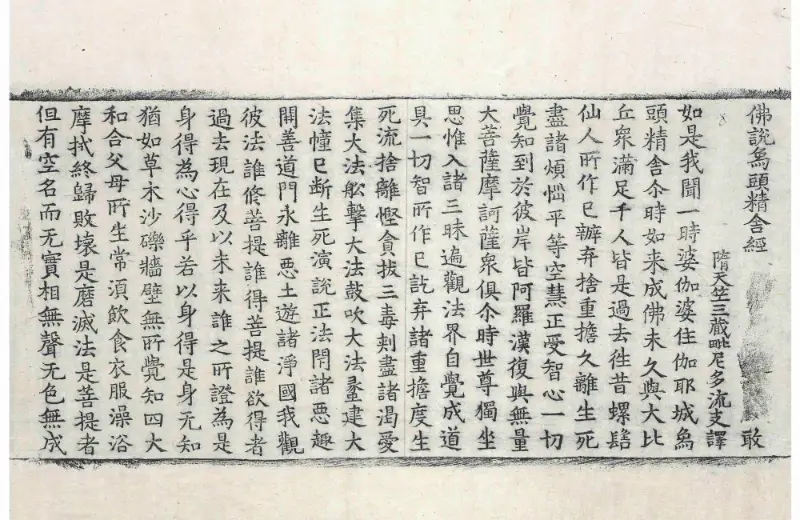 佛說象頭精舍經　敢
隋天竺三藏毗尼多流支譯
如是我聞一時婆伽婆住伽耶城象
頭精舍尒時如来成佛未久與大比
丘衆滿足千人皆是過去徃昔螺髻
仙人所作已辦弃捨重擔久離生死
盡諸煩惱平等空慧正受智心一切
覺知到於彼岸皆阿羅漢復與無量
大菩薩摩訶薩衆俱尒時世尊獨坐
思惟入諸三昧遍觀法界自覺成道
具一切智所作已訖弃諸重擔度生
死流捨離慳貪拔三毒刾盡諸渴愛
集大法舩擊大法鼓吹大法蠡建大
法幢已断生死演說正法閇諸惡趣
開善道門永離惡土遊諸淨國我觀
彼法誰修菩提誰得菩提誰欲得者
過去現在及以未来誰之所證為是
身得為心得乎若以身得是身无知
猶如草木沙礫牆壁無所覺知四大
和合父母所生常須飲食衣服澡浴
摩拭終歸敗壞是磨滅法是菩提者
但有空名而无實相無聲无色無成